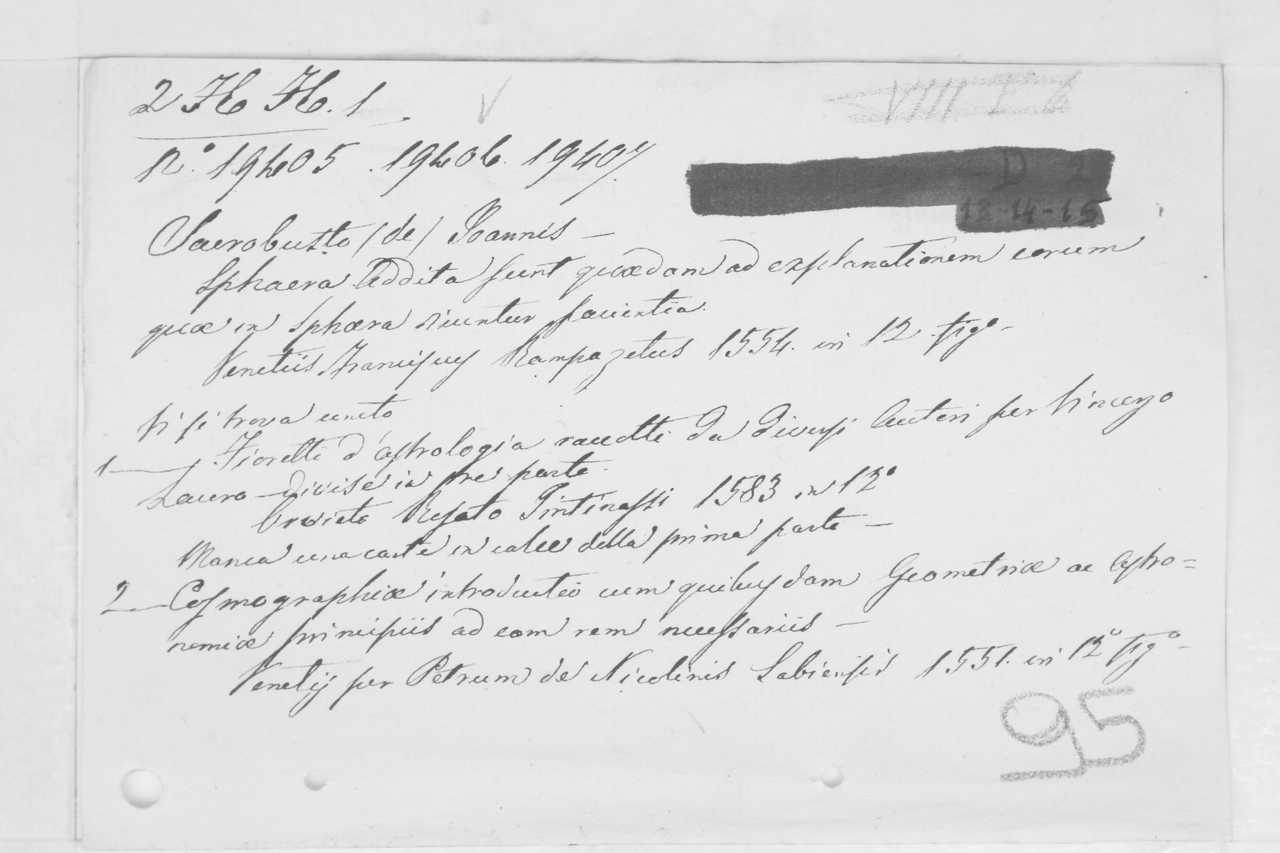 2 H H. 1
VIII
N.º 19405. 19406. 19407.
D 2
13-14-15
Sacrobusto (de) Joannis —
Sphaera Addita sunt quædam ad explanationem eorum
quæ in Sphæra dicuntur facientia.
Venetiis Franciscus Rampazetus 1554. in 12 figº
Vi si trova unito
1— Fioretti d'astrologia raccolti da diversi Autori per Vincenzo
Lauro — divise in tre parte.
Orvieto Rosato Tintinassi 1583 in 12º
Manca una carta in calce della prima parte —
2— Cosmographiæ introductio cum quibusdam Geometriæ ac Astro=
nomiæ principiis ad eam rem necessariis —
Venetijs per Petrum de Nicolinis Sabiensis 1551. in 12º figº
95